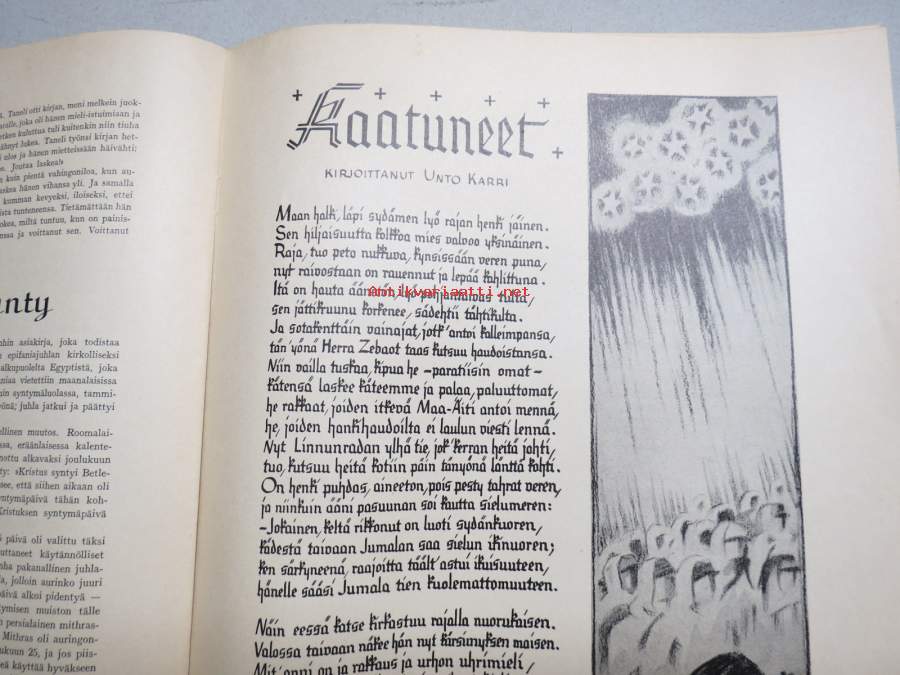 ä. Taneli otti kirjan, meni melkein juok-
aralle, joka oli hänen mieli-istuimiaan ja
etken kuluttua tuli kuitenkin niin tiuha
ähnyt lukea. Taneli työnsi kirjan het-
i ulos ja hänen mietteissään häivähti:
e. Joutaa laskea!»
n kuin pientä vahingoniloa, kun au-
askea hänen vihansa yli. Ja samalla
kumman kevyeksi, iloiseksi, ettei
ista tunteensa. Tietämättään hän
okea, miltä tuntuu, kun on painis-
nssa ja voittanut sen. Voittanut
nty
nhin asiakirja, joka todistaa
epifaniajuhlan kirkolliseksi
alkupuolelta Egyptistä, joka
niaa vietettiin maanalaisissa
nin syntymäluolassa, tammi-
yönä; juhla jatkui ja päättyi
ellinen muutos. Roomalai-
ssa, eräänlaisessa kalente-
nottu alkavaksi joulukuun
ty: »Kristus syntyi Betle-
see, että siihen aikaan oli
yntymäpäivä tähän koh-
Kristuksen syntymäpäivä
päivä oli valittu täksi
uttaneet käytännölliset
nha pakanallinen juhla-
a, jolloin aurinko juuri
päivä alkoi pidentyä —
tymisen muiston tälle
persialainen mithras-
Mithras oli auringon-
ukuun 25, ja jos piis-
eä käyttää hyväkseen
Kaatuneet
KIRJOITTANUT UNTO KARRI
Maan halki, läpi sydämen lyö rajan henki jäinen.
Sen hiljaisuutta kolkkoa mies valvoo yksinäinen.
Raja, tuo peto nukkuva, kynsissään veren puna,
nyt raivostaan on rauennut ja lepää kahlittuna.
Itä on hauta äänetön,
sen jättikruunu korkenee, sädehtii tähtikulta.
Ja sotakenttäin vainajat, jotk' antoi kalleimpansa,
tän'yönä Herra Zebaot taas kutsuu haudoistansa.
Niin vailla tuskaa, kipua he – paratiisin omat –
kätensä laskee käteemme ja palaa, paluuttomat,
he rakkaat, joiden itkevä Maa-Äiti antoi mennä,
he, joiden hankihaudoilta ei laulun viesti lennä.
Nyt Linnunradan ylhä tie, jok' kerran heitä johti,
tuo, kutsuu heitä kotiin päin tänyönä länttä kohti.
On henki puhdas, aineeton, pois pesty tahrat veren,
ja niinkuin ääni pasuunan soi kautta sielumeren:
– Jokainen, keltä rikkonut on luoti sydänkuoren,
kädestä taivaan Jumalan saa sielun ikinuoren;
ken särkyneenä, raajoitta täält' astui ikuisuuteen,
hänelle sääsi Jumala tien kuolemattomuuteen.
Näin eessä katse kirkastuu rajalla nuorukaisen.
Valossa taivaan näkee hän nyt kärsimyksen maisen.
Mit' onni on ja rakkaus ja urhon uhrimieli,
Antikvariaatti.net